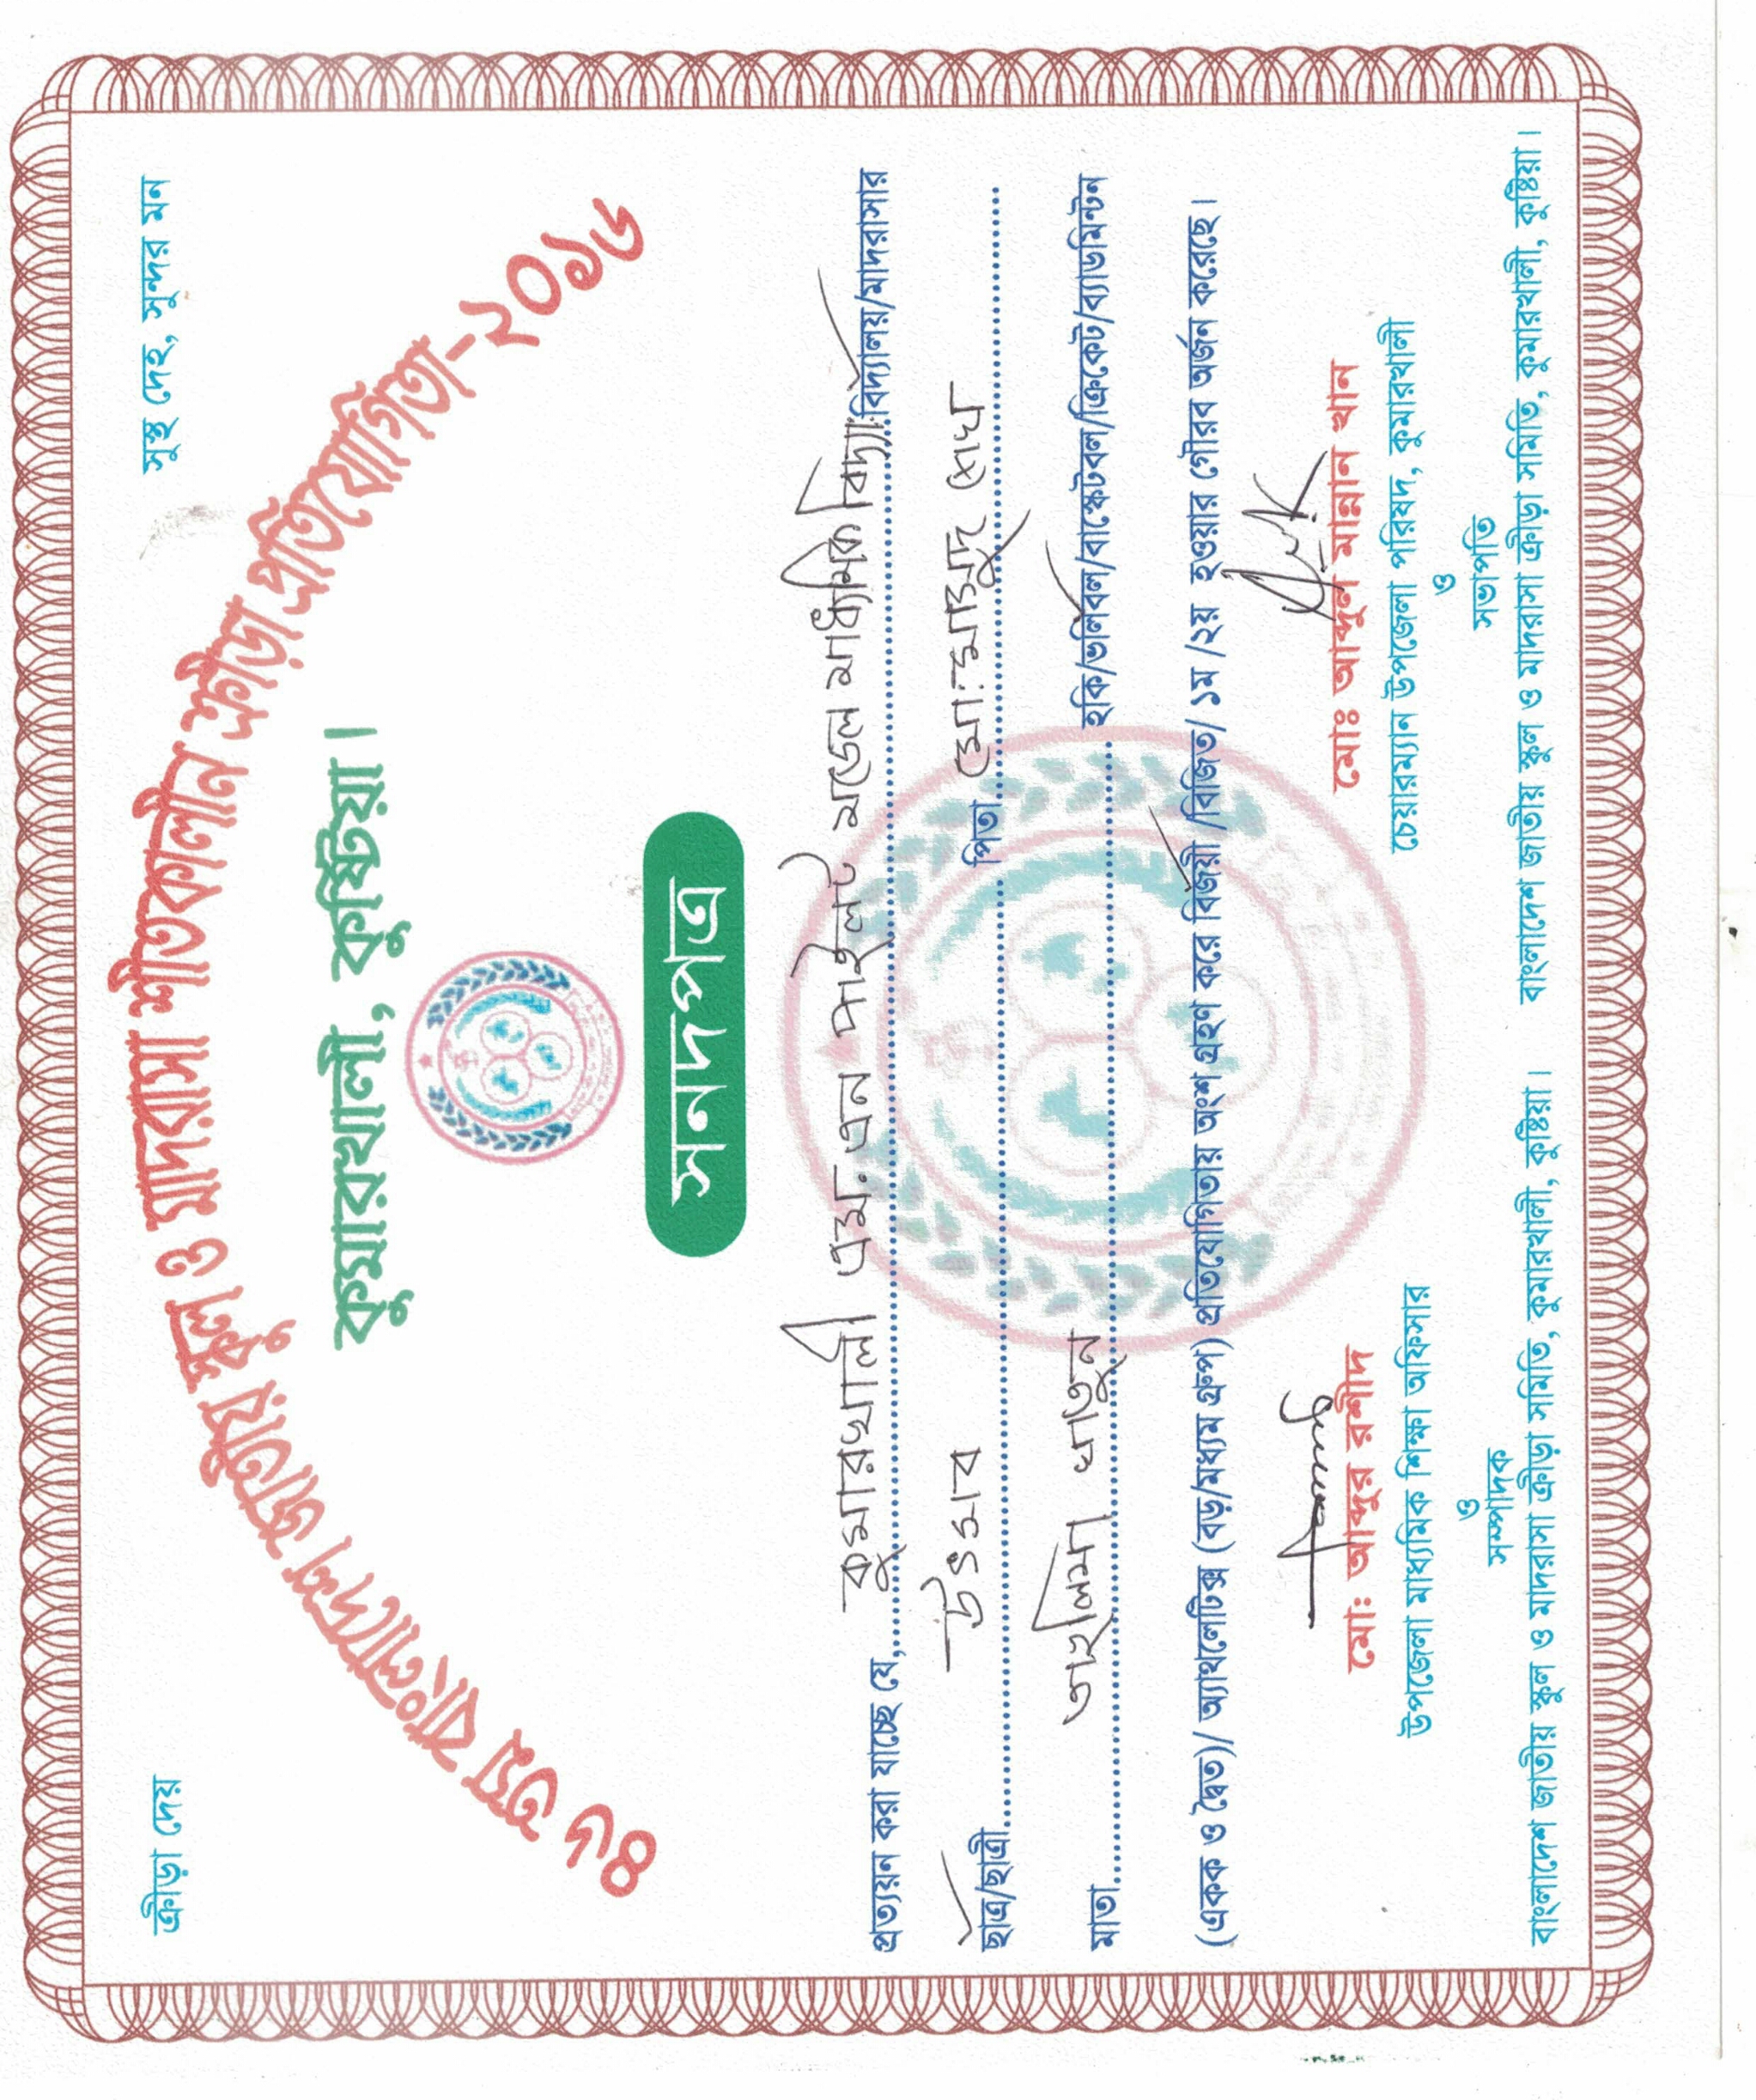 ক্রীড়া দেয়
সুস্থ দেহ, সুন্দর মন
৪৬ তম বাংলাদেশ জাতীয় স্কুল ও মাদরাসা শীতকালীন ক্রীড়া প্রতিযোগিতা-২০১৬
কুমারখালী, কুষ্টিয়া।
সনদপত্র
প্রত্যয়ন করা যাচ্ছে যে, কুমারখালী এম. এন পাইলট মডেল মাধ্যমিক বিদ্যা: বিদ্যালয়/মাদরাসার
ছাত্র/ছাত্রী উৎসব পিতা মো: মাসুদ শেখ
মাতা তাছলিমা খাতুন হকি/ভলিবল/বাস্কেটবল/ক্রিকেট/ব্যাডমিন্টন
(একক ও দ্বৈত)/ অ্যাথলেটিক্স (বড়/মধ্যম গ্রুপ) প্রতিযোগিতায় অংশ গ্রহণ করে বিজয়ী /বিজিত/ ১ম /২য় হওয়ার গৌরব অর্জন করেছে।
মো: আব্দুর রশীদ
উপজেলা মাধ্যমিক শিক্ষা অফিসার
ও
সম্পাদক
বাংলাদেশ জাতীয় স্কুল ও মাদরাসা ক্রীড়া সমিতি, কুমারখালী, কুষ্টিয়া।
মোঃ আব্দুল মান্নান খান
চেয়ারম্যান উপজেলা পরিষদ, কুমারখালী
ও
সভাপতি
বাংলাদেশ জাতীয় স্কুল ও মাদরাসা ক্রীড়া সমিতি, কুমারখালী, কুষ্টিয়া।